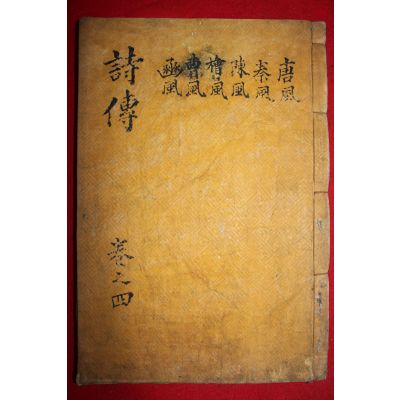 詩傳
卷之四
唐風
秦風
陳風
檜風
曹風
豳風